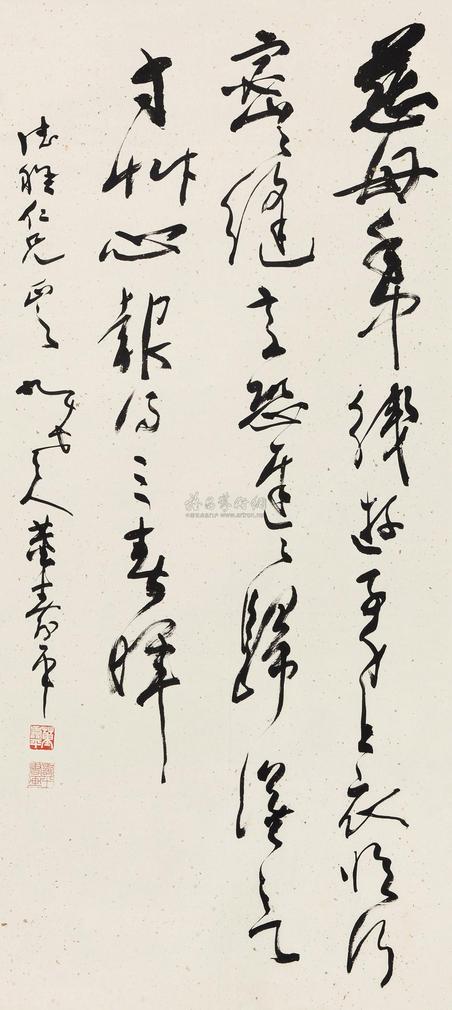 慈母手中线游子身上衣临行
密密缝意恐迟迟归谁言
寸草心报得三春晖
仁兄正之
九十叟人董寿平